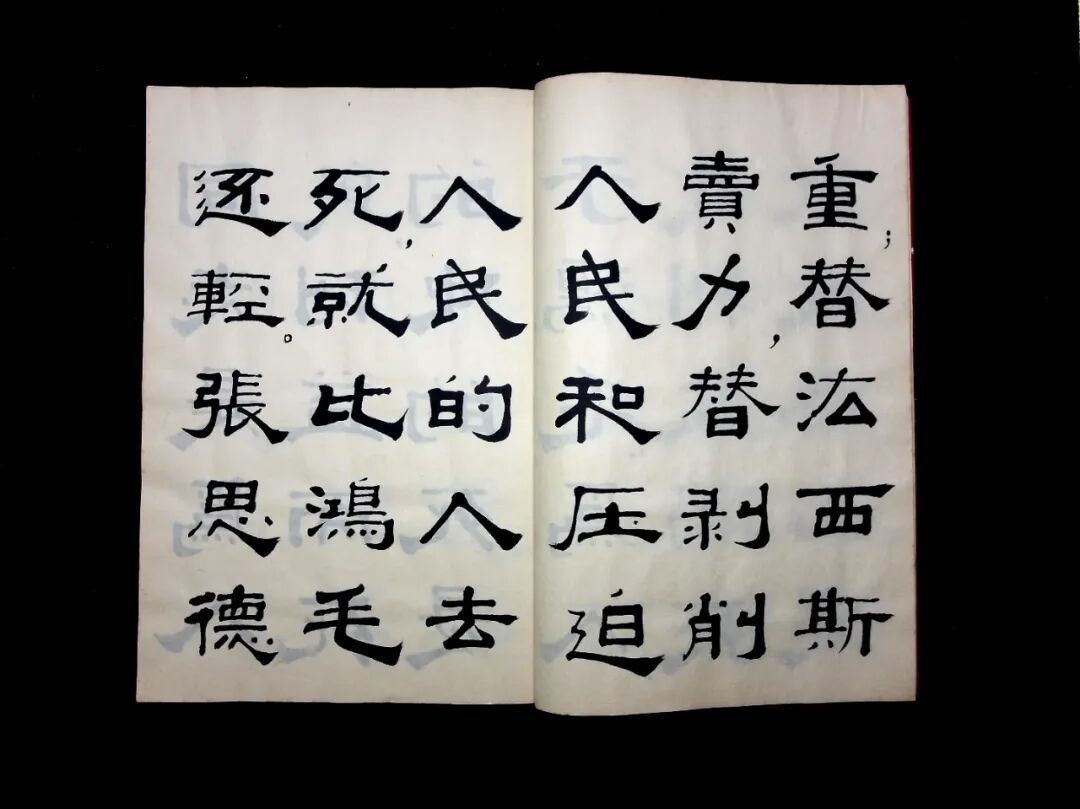 重；替法西斯
賣力，替剥削
人民和压迫
人民的人去
死，就比鴻毛
还輕。張思德